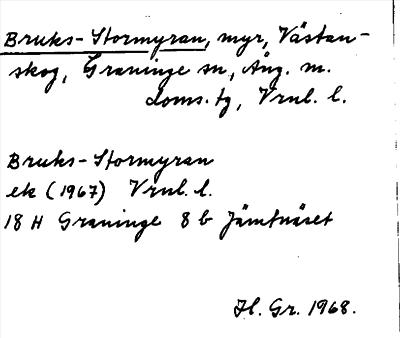 Bruks-Stormyran, myr, Västan-
skog, Graninge sn, Ång. m.
doms. tg, Vrnl. l.
Bruks-Stormyran
ek (1967) Vrnl. l.
18 H Graninge 8 b Jämtnäset
Hl. Gr. 1968.